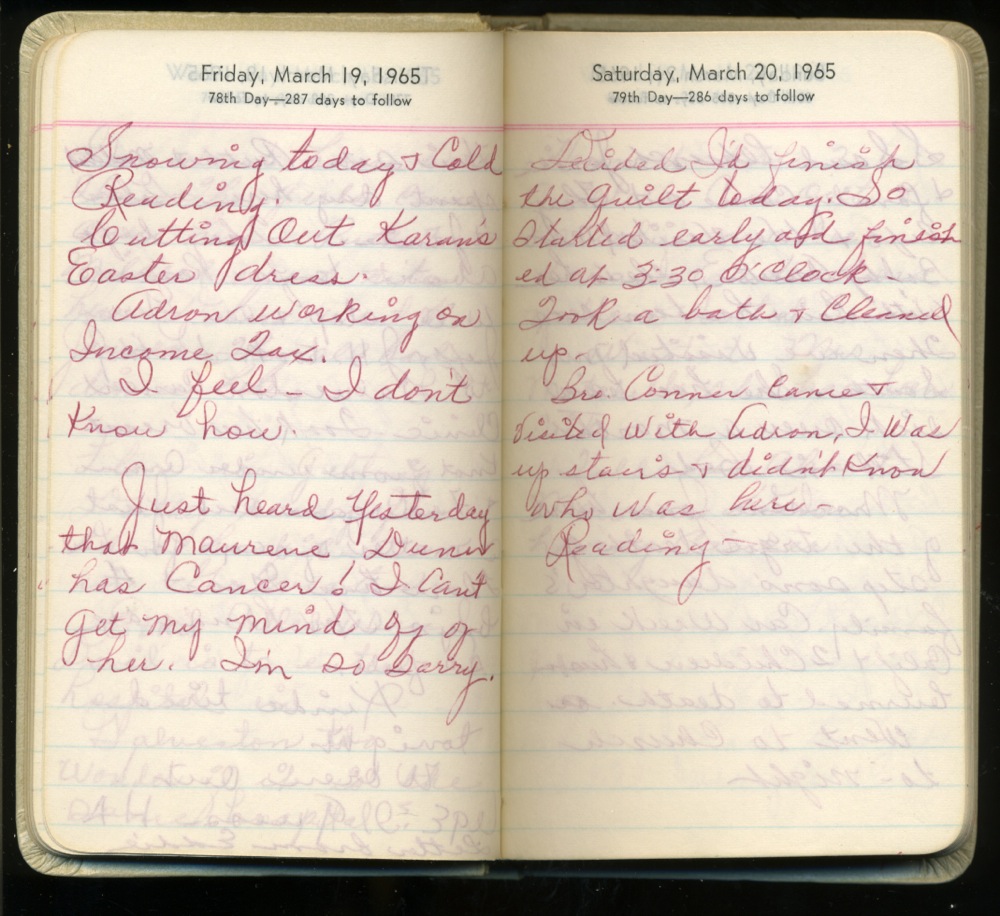 Friday, March 19, 1965
78th Day—287 days to follow
Snowing today & Cold
Reading.
Cutting Out Karan's
Easter dress.
Adron working on
Income Tax.
I feel - I don't
Know how.
Just heard Yesterday
that Maurene Dunn
has Cancer! I Can't
get my mind off of
her. I'm so sorry.
Saturday, March 20, 1965
79th Day—286 days to follow
Decided I'd finish
the quilt today. So
started early and finish
ed at 3:30 O'Clock -
Took a bath & Cleaned
up -
Bro. Conner Came &
visited with Adron, I Was
up stairs & didn't Know
who was here -
Reading -